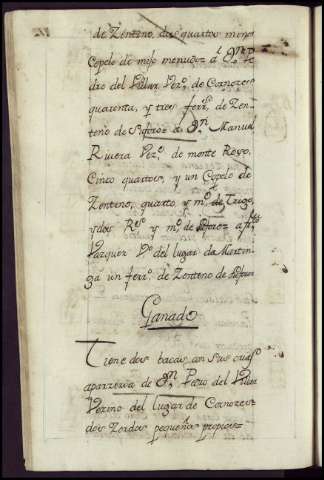 de Zenteno, dos quartos menos
Copelo de mijo menudo: a Dn Pe
dro del Villar Vezo. de Cornozes
quarenta, y tres ferrs. de Zen-
teno de a Dn Manuel
Riviera Vezo. de monte Roxo.
Cinco quartos, y un Copelo de
Zenteno, quarto, y mo. de Trigo,
y dos Rs. y mo. de a
Vazquez Vo. del lugar da Martin-
gá un ferro. de Zenteno de
Ganado
Tiene dos bacas con sus crias
aparzeria de Dn Pedro del Villar
Vezino del lugar de Cornozes=
dos Zerdas pequeñas propias=